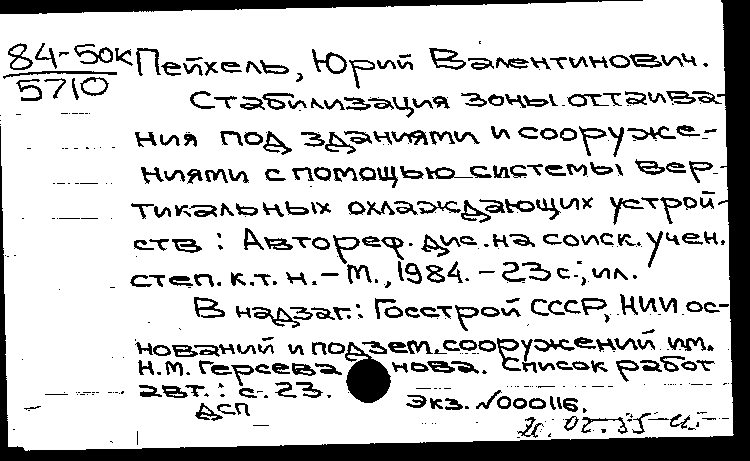 84-50к Пейхель, Юрий Валентинович.
5710
Стабилизация зоны оттаива-
ния под зданиями и сооруже-
ниями с помощью системы вер-
тикальных охлаждающих устрой-
ств : Автореф. дис. на соиск. учен.
степ. к.т.н. – М., 1984. – 23 с.; ил.
В надзаг.: Госстрой СССР, НИИ ос-
нований и подзем. сооружений им.
Н.М. Герсева нова. Список работ
авт.: с. 23.
ДСП Экз. №000116.
20.02.85